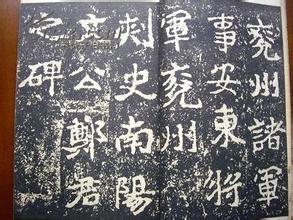 兗州諸軍
事安東將
軍兗州
刺史南陽
文公鄭君
之碑